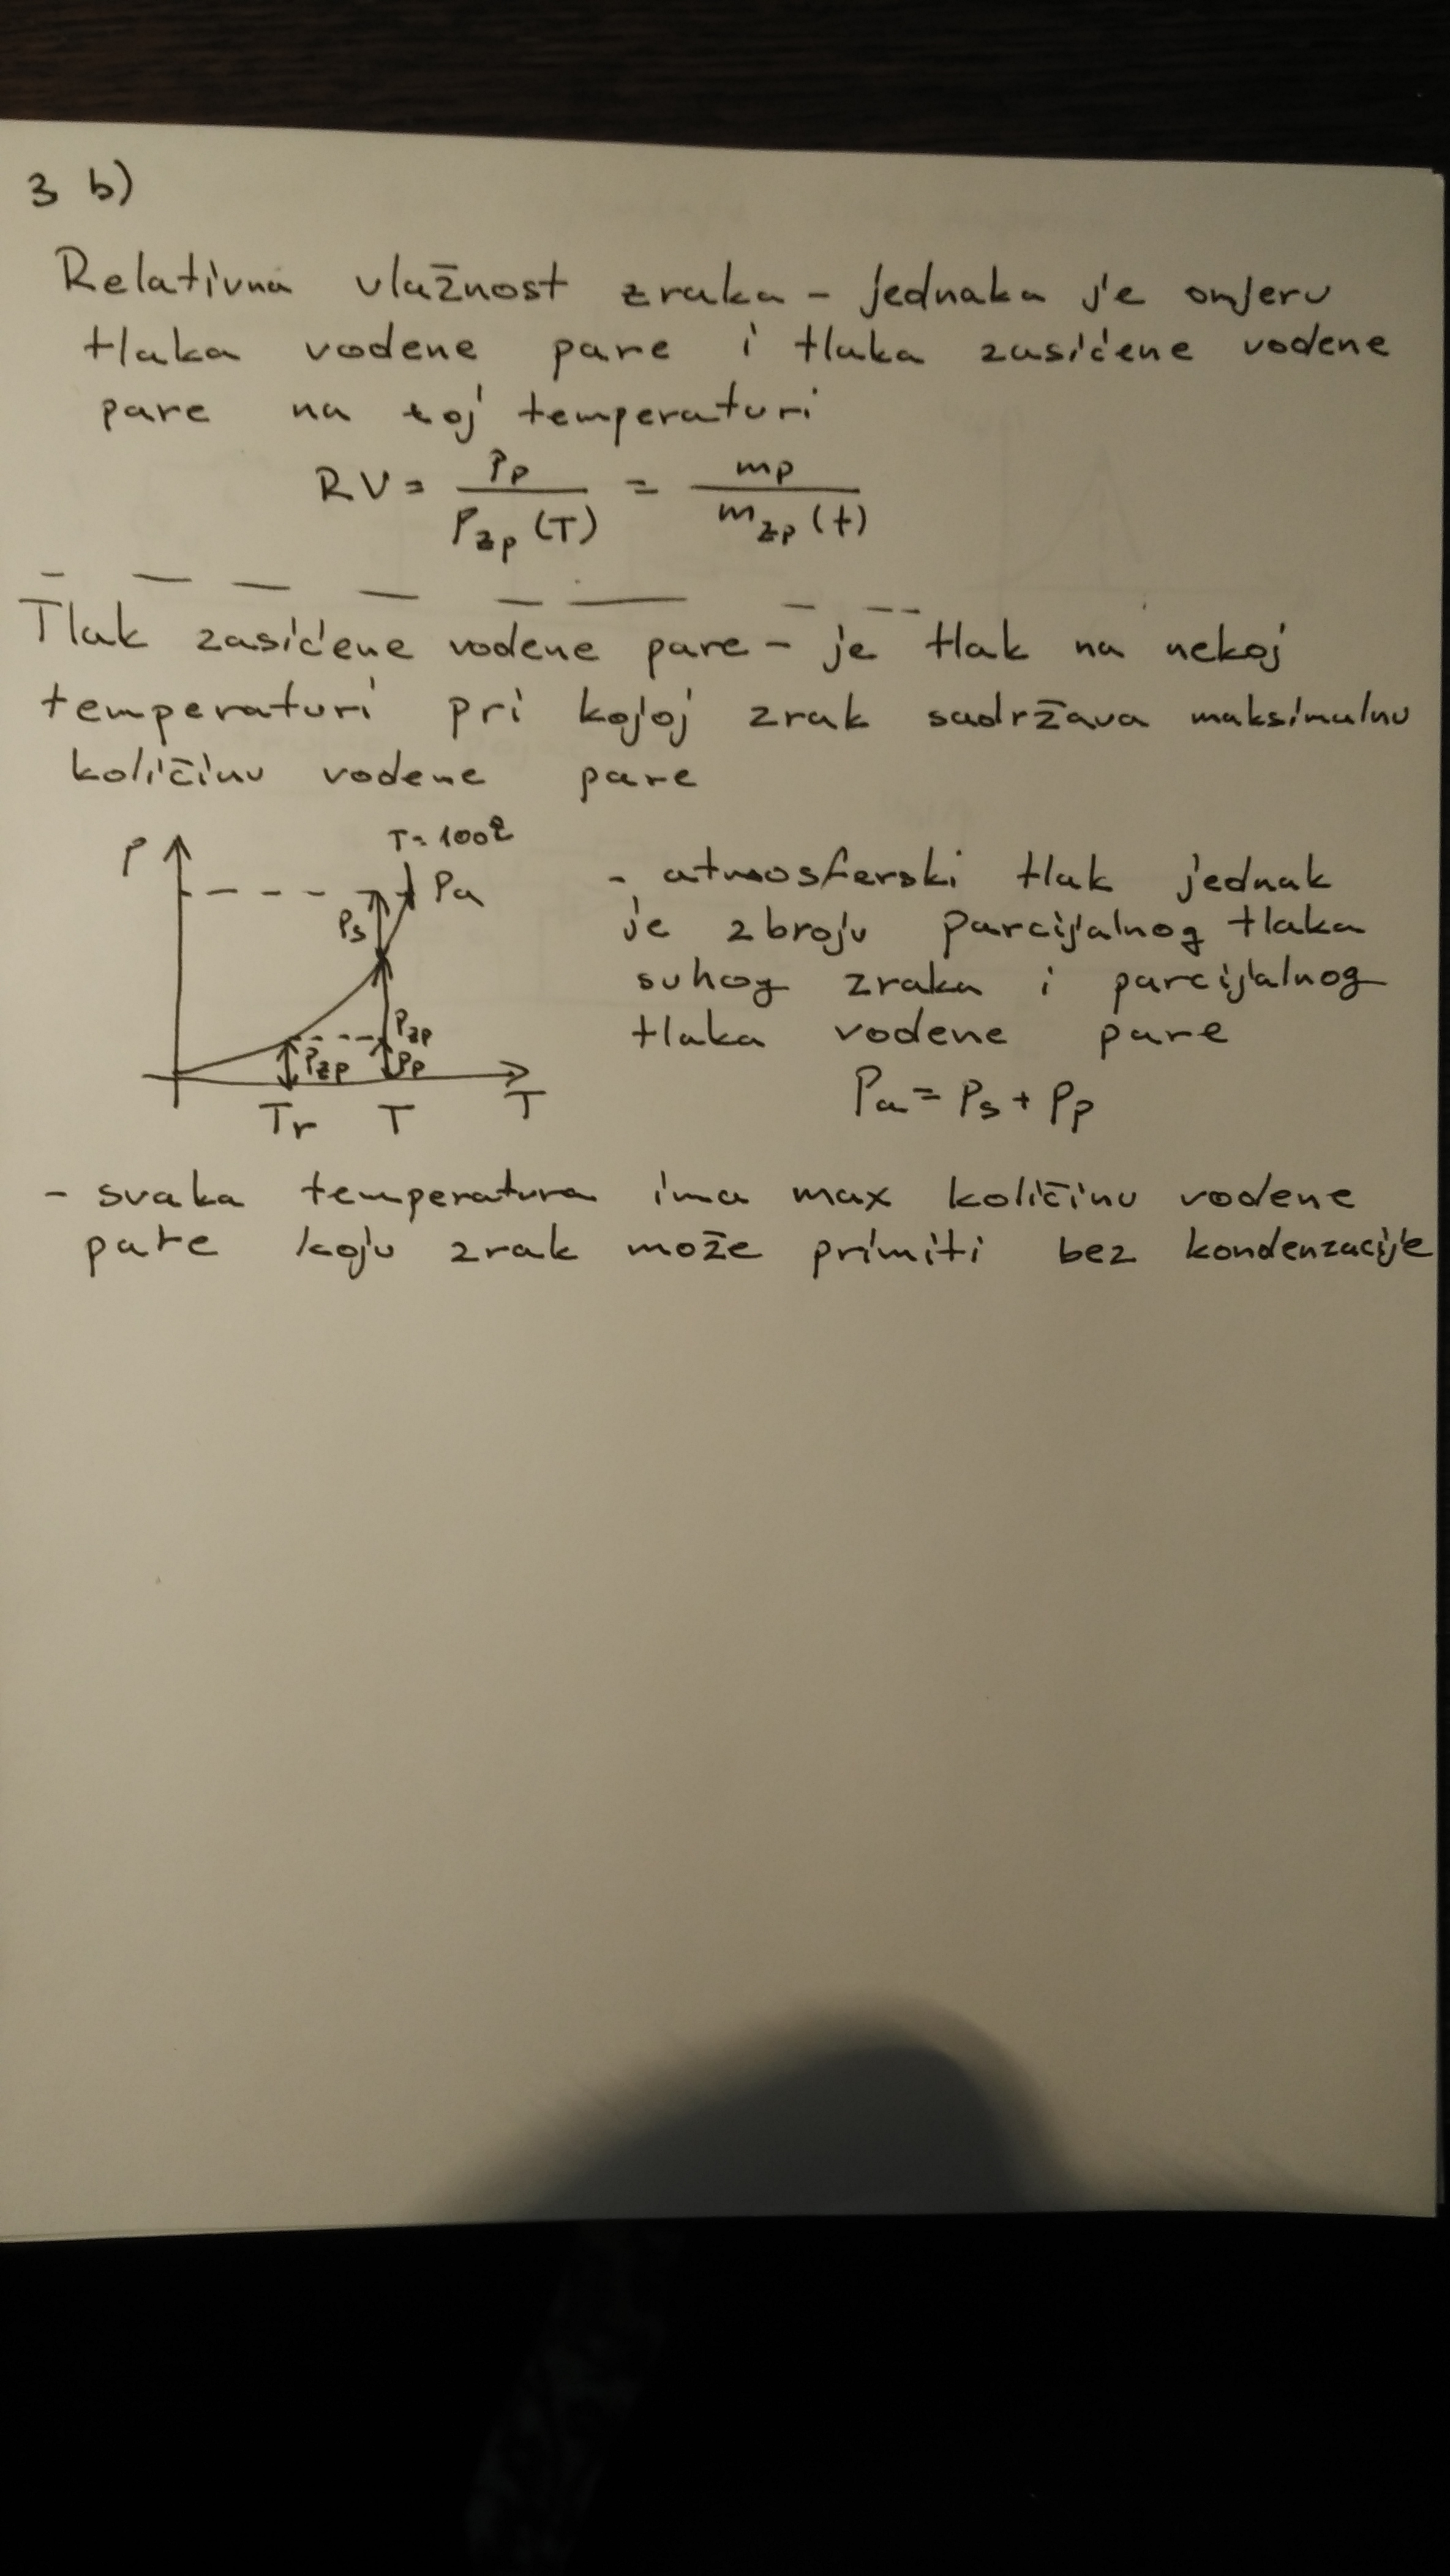 3 b)
Relativna vlažnost zraka - jednaka je omjeru
tlaka vodene pare i tlaka zasićene vodene
pare na toj temperaturi
RV = Pp / Pzp (T) = mp / mzp (t)
Tlak zasićene vodene pare - je tlak na nekoj
temperaturi pri kojoj zrak sadržava maksimalnu
količinu vodene pare
T = 100°
P
Pa
Ps
Pzp
Pzp Pp
Tr T T
- atmosferski tlak jednak
je zbroju parcijalnog tlaka
suhog zraka i parcijalnog
tlaka vodene pare
Pa = Ps + Pp
- svaka temperatura ima max količinu vodene
pare koju zrak može primiti bez kondenzacije